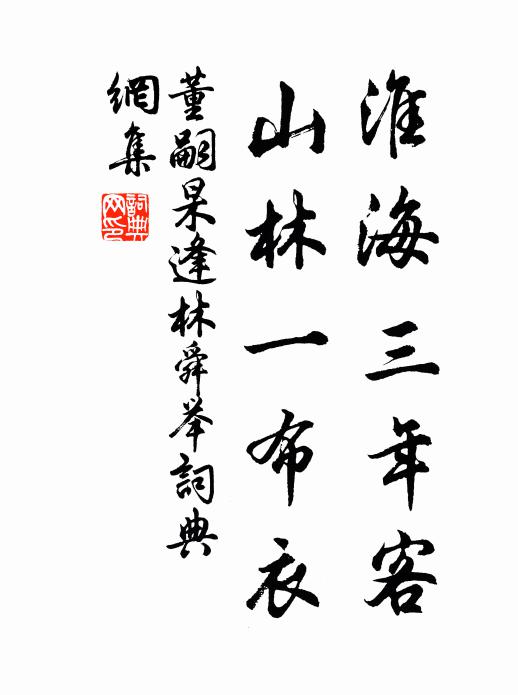 淮海三年客
山林一布衣
董嗣杲逢林舜举詞典
網集
詞典网印